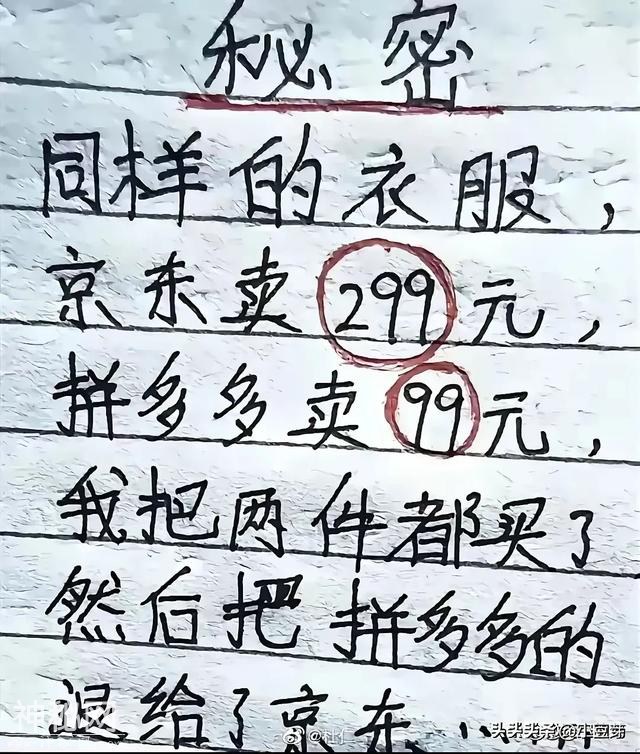 秘密
同样的衣服，
京东卖299元，
拼多多卖99元，
我把两件都买了
然后把拼多多的
退给了京东……
@杜仁